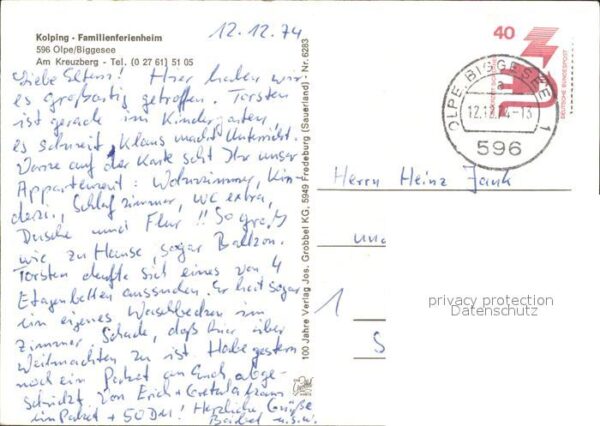 Kolping - Familienferienheim
596 Olpe/Biggesee
Am Kreuzberg - Tel. (0 27 61) 51 05
12.12.74
Liebe Eltern! Hier haben wir
es großartig getroffen. Torsten
ist gerade im Kindergarten,
es schneit, Klaus macht Unterricht.
Vorne auf der Karte seht Ihr unser
Appartement: Wohnzimmer, Kin-
derz., Schlafzimmer, WC extra,
Dusche und Flur!! So groß
wie zu Hause, sogar Balkon.
Torsten durfte sich eines von 4
Etagenbetten aussuchen. Er hat sogar
ein eigenes Waschbecken im
Zimmer. Schade, daß hier über
Weihnachten zu ist. Habe gestern
noch ein Paket an Euch abge-
schickt. Von Erich + Greta kam
ein Paket + 50 DM! Herzliche Grüße
Bärbel u.s.w.
100 Jahre Verlag Jos. Grobbel KG, 5949 Fredeburg (Sauerland) - Nr. 6283
40
DEUTSCHE BUNDESPOST
OLPE, BIGGESEE 1
a
12.12.74-13
596
Herrn Heinz Jank
und
1
S
privacy protection
Datenschutz